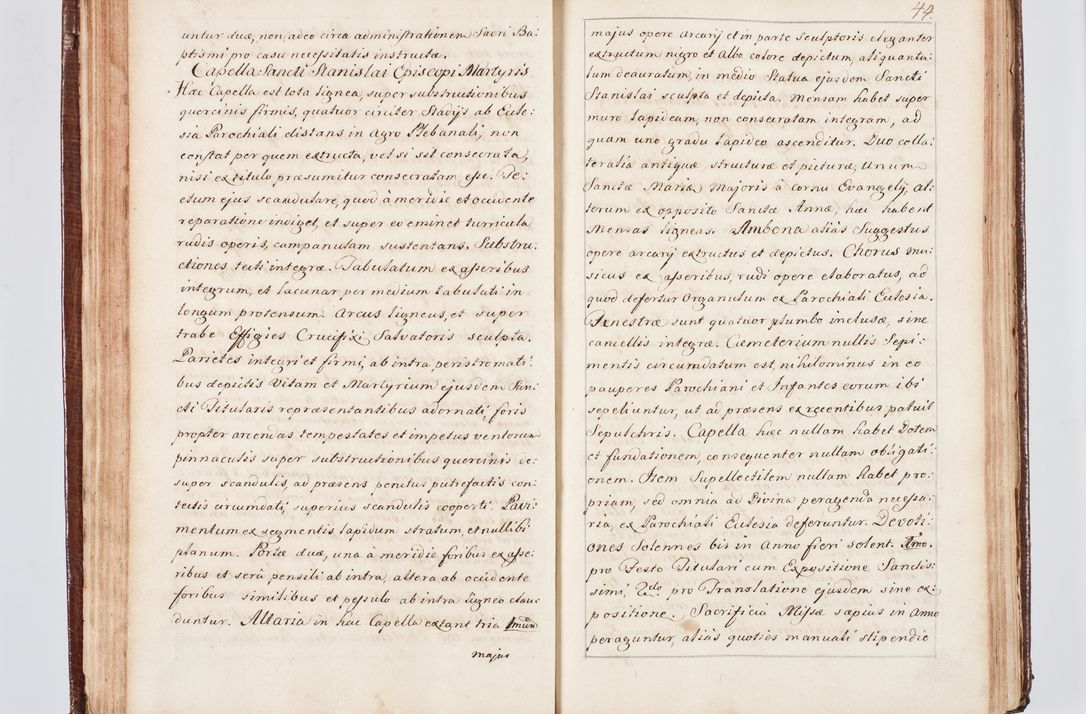 untur duæ, non, adeo circa administrationem Sacri Ba:
ptismi pro casu necessitatis instructæ.
Capella Sancti Stanislai Episcopi Martyris
Hæc Capella est tota lignea, super substructionibus
quercinis firmis, quatuor circiter Stadijs ab Eccle:
sia Parochiali distans in Agro Plebanali, non
constat per quem extructa, vel si sit consecrata,
nisi ex titulo præsumitur consecratam esse. Te:
ctum ejus scandulare, quod à meridie et occidente
reparatione indiget, et super eo eminet turricula
rudis operis, campanulam sustentans. Substru:
ctiones tecti integræ. Tabulatum ex asseribus
integrum, et lacunar per medium tabulati in
longum protensum. Arcus ligneus, et super
trabe Effigies Crucifixi Salvatoris sculpta.
Parietes integri et firmi, ab intra peristromati:
bus depictis Vitam et Martyrium ejusdem San:
cti Titularis repræsentantibus adornati, foris
propter arcendas tempestates et impetus ventorum
pinnaculis super substructionibus quercinis de:
super scandulis, ad præsens penitus putrefactis con:
tectis circumdati, superius scandulis cooperti. Pavi:
mentum ex segmentis lapidum stratum, et nullibi
planum. Portæ duæ, una à meridie foribus ex asse:
ribus et serâ pensili ab intra, altera ab occidente
foribus similibus et pessulo ab intra ligneo clau:
duntur. Altaria in hac Capella extant tria 1mum
majus
44.
majus opere arcarij et in parte sculptoris eleganter
extructum nigro et albo colore depictum, aliquantu:
lum deauratum, in medio Statua ejusdem Sancti
Stanislai sculpta et depicta. Mensam habet super
muro lapideam, non consecratam integram, ad
quam uno gradu lapideo ascenditur. Duo colla:
teralia antiquæ structuræ et picturæ, Unum
Sanctæ Mariæ Majoris à cornu Evangelij, al:
terum ex opposito Sanctæ Annæ, hæc habent
Mensas ligneas. Ambona aliàs Suggestus
opere arcarij extructus et depictus. Chorus mu:
sicus ex asseribus, rudi opere elaboratus, ad
quod defertur Organulum ex Parochiali Ecclesia.
Fenestræ sunt quatuor plumbo inclusæ, sine
cancellis integræ. Cæmeterium nullis Sepi:
mentis circumdatum est, nihilominus in eo
pauperes Parochiani et Infantes eorum ibi
sepeliuntur, ut ad præsens ex recentibus patuit
Sepulchris. Capella hæc nullam habet Dotem
et fundationem, consequenter nullam obligati:
onem. Item Supellectilem nullam habet pro:
priam, sed omnia ad Divina peragenda necessa:
ria, ex Parochiali Ecclesia deferuntur. Devoti:
ones Solennes bis in Anno fieri solent. 1mo.
pro Festo Titulari cum Expositione Sanctis:
simi, 2do pro Translatione ejusdem sine ex:
positione. Sacrificia Missæ sæpius in Anno
peraguntur, aliàs quoties manuali stipendio